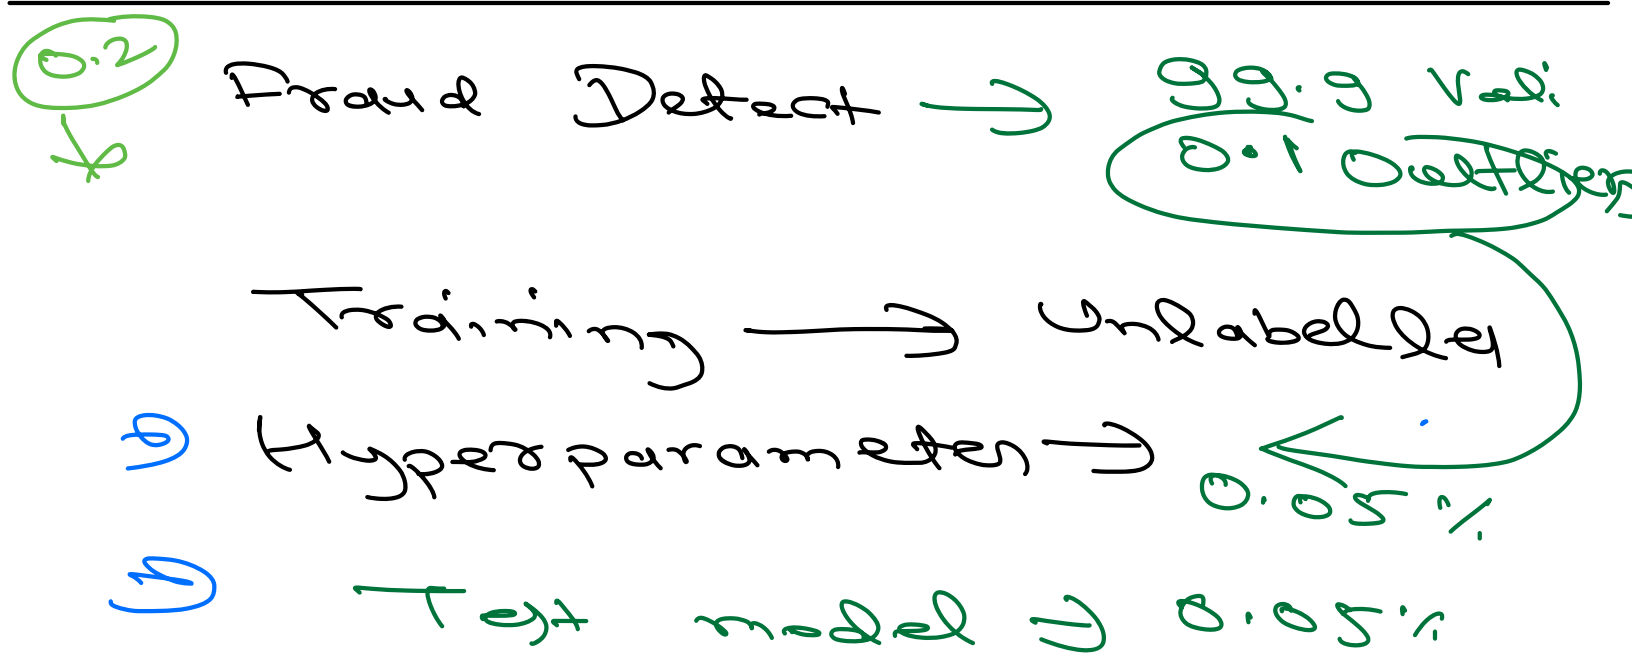 0.2 Fraud Detect → 99.9 Vali
0.1 Outliers
Training → Unlabelled
Hyperparameter →
0.05 %
Test model → 0.05 %